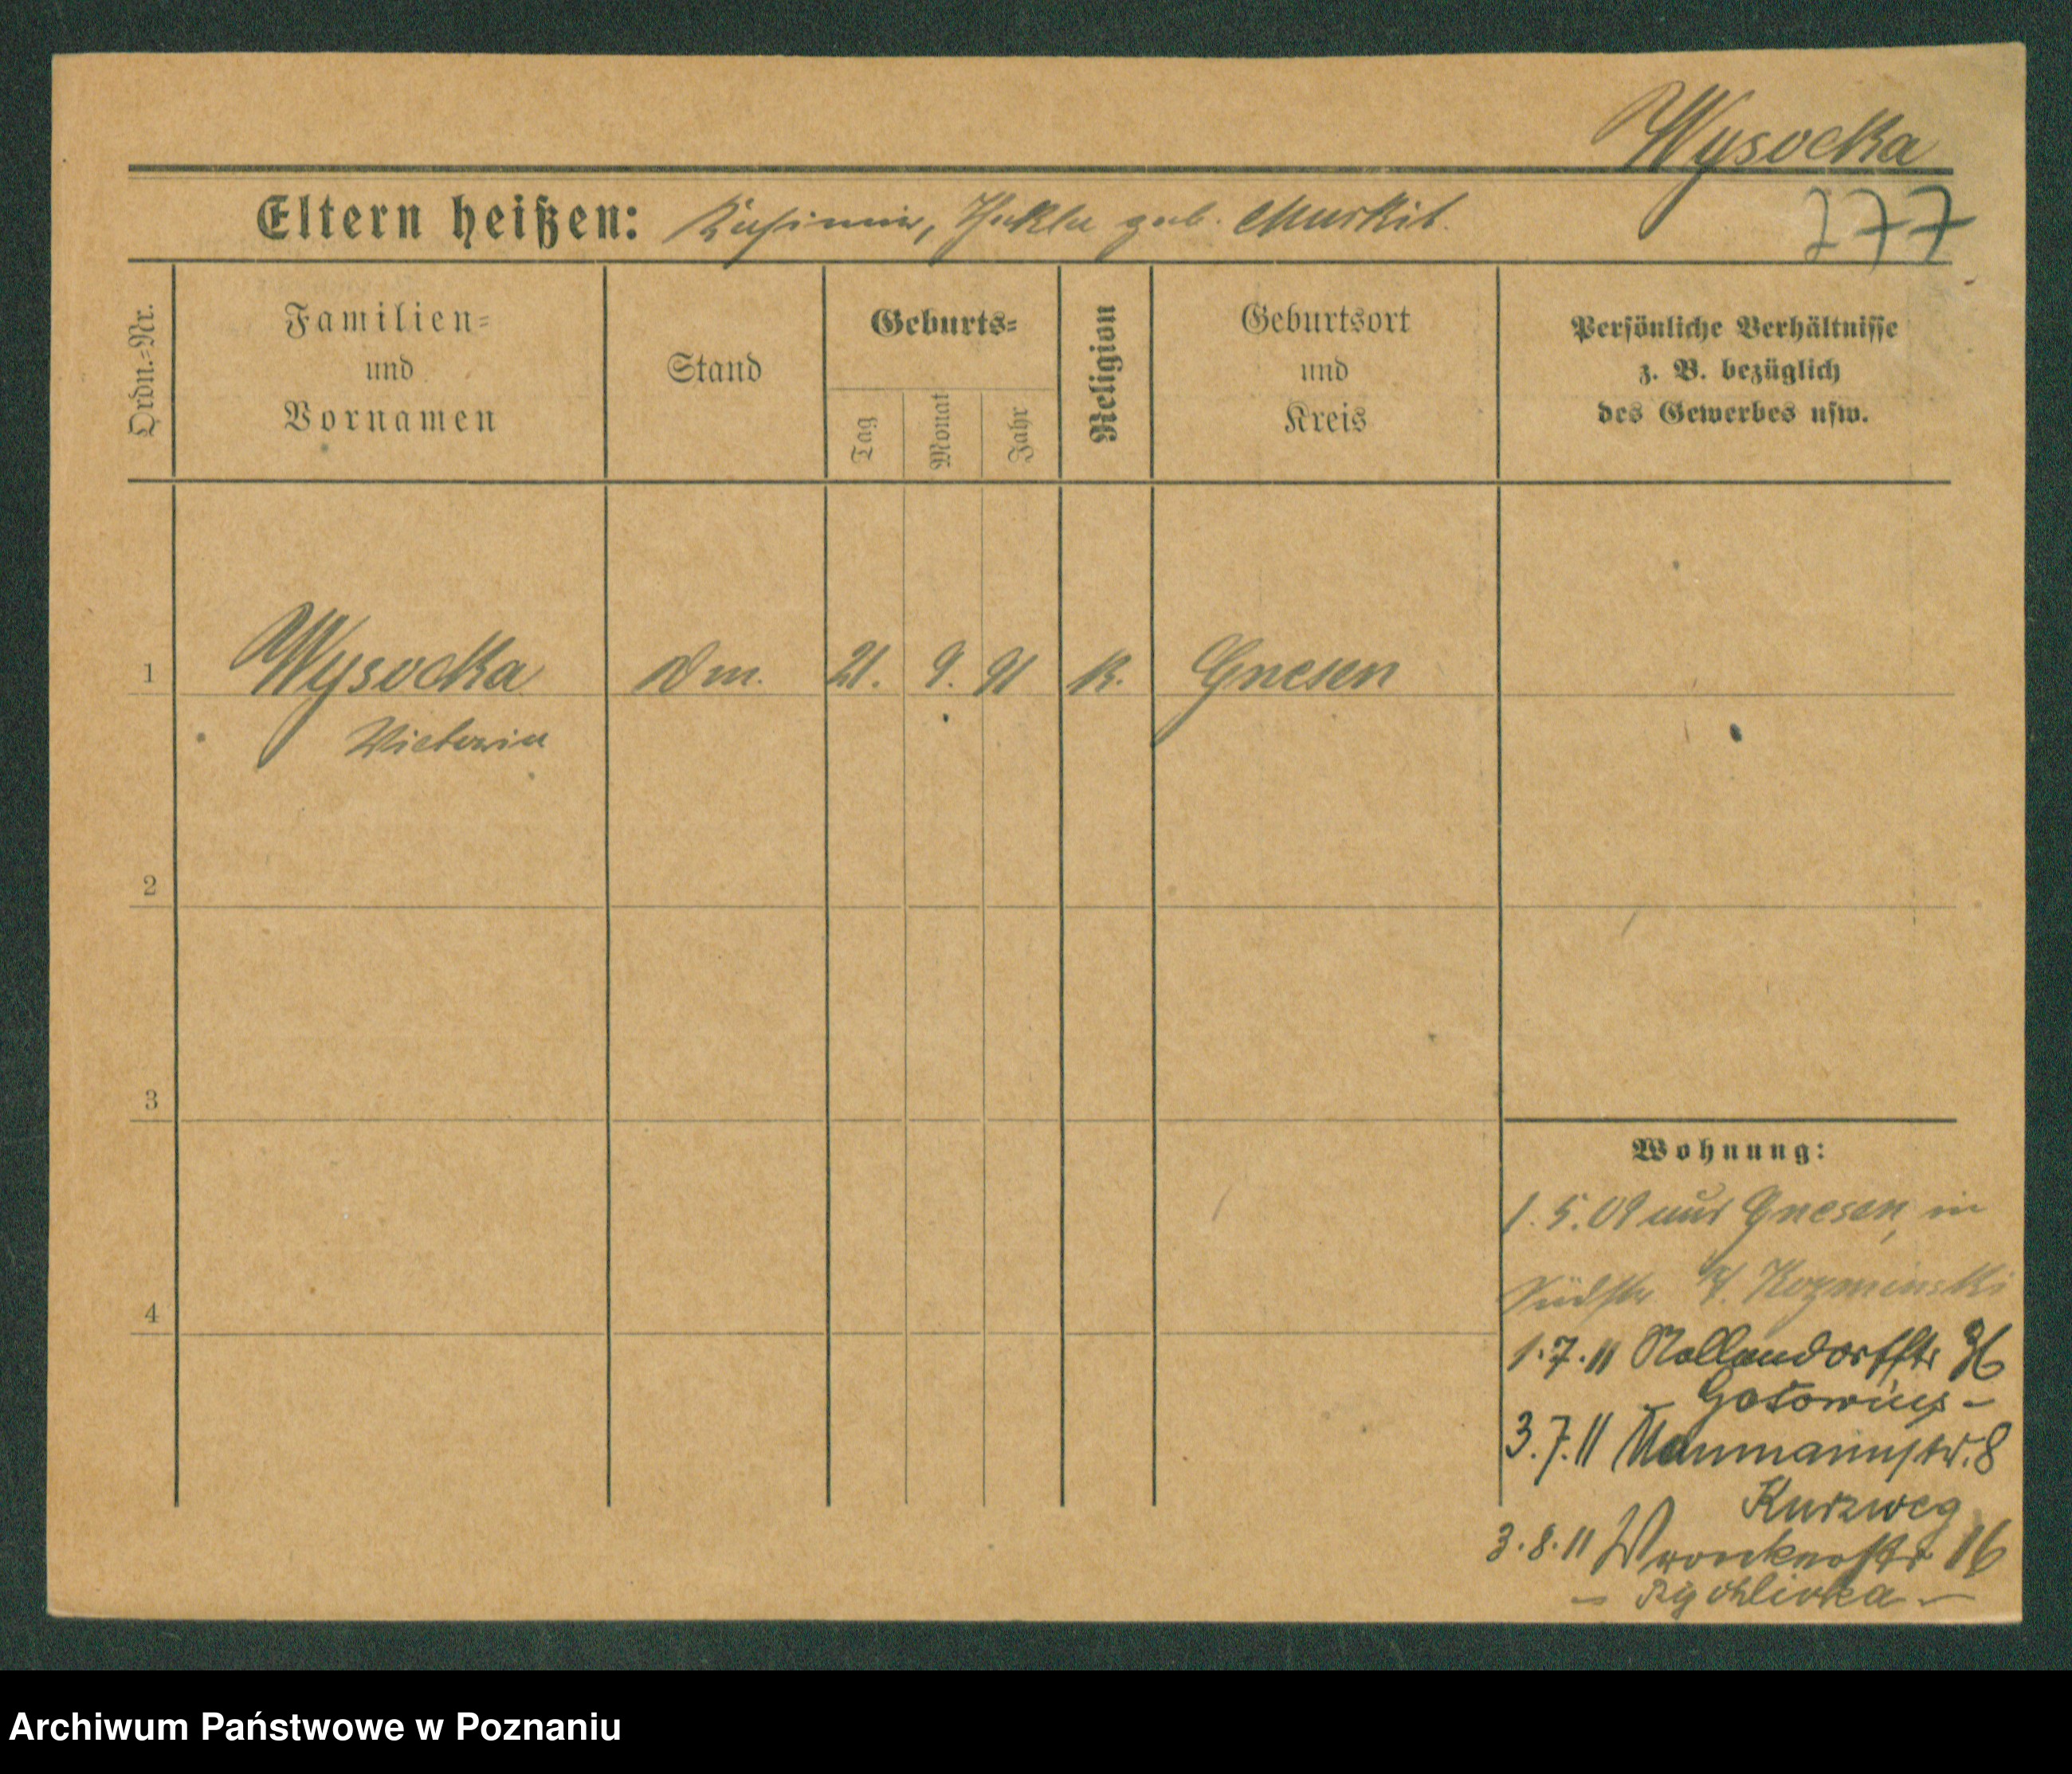 Wysocka
777
Eltern heißen: Kasimir, Thekla geb. Murkit.
Ordn.-Nr.
Familien-
und
Vornamen
Stand
Geburts-
Tag
Monat
Jahr
Religion
Geburtsort
und
Kreis
Persönliche Verhältnisse
z. B. bezüglich
des Gewerbes usw.
1
Wysocka
Dm.
21.
9.
91
K.
Gnesen
Victoria
2
3
4
Wohnung:
1.5.09 aus Gnesen, in
Südstr Kozminski
1.7.11 Nollendorffstr 36
3.7.11 Naumannstr. 8
Kurzweg
3.8.11 Wronkerstr 16
- Rychlicka -
Archiwum Państwowe w Poznaniu